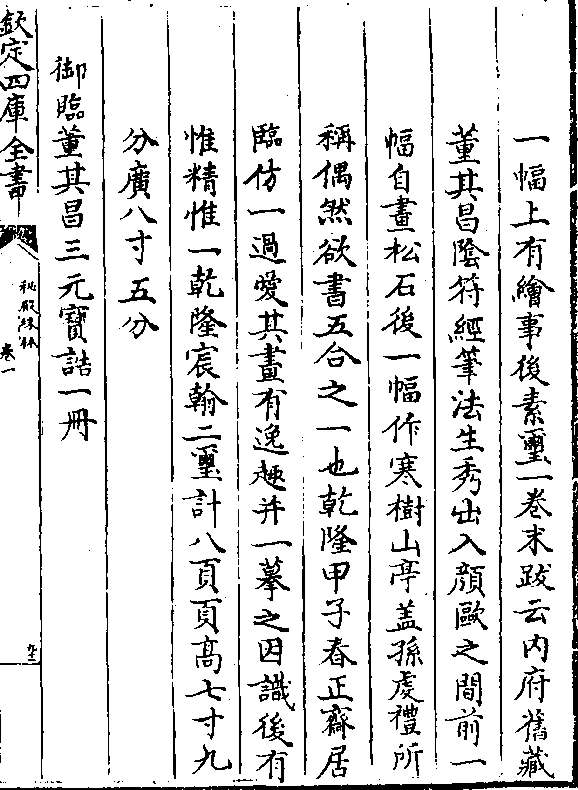 一幅上有繪事後素璽一卷末跋云内府舊藏
董其昌陰符經筆法生秀出入顔歐之間前一
幅自畫松石後一幅作寒樹山亭盖孫虔禮所
稱偶然欲書五合之一也乾隆甲子春正齋居
臨仿一過愛其畫有逸趣并一摹之因識後有
惟精惟一乾隆宸翰二璽計八頁頁高七寸九
分廣八寸五分
御臨董其昌三元寳誥一冊
欽定四庫全書
秘殿珠林
卷一